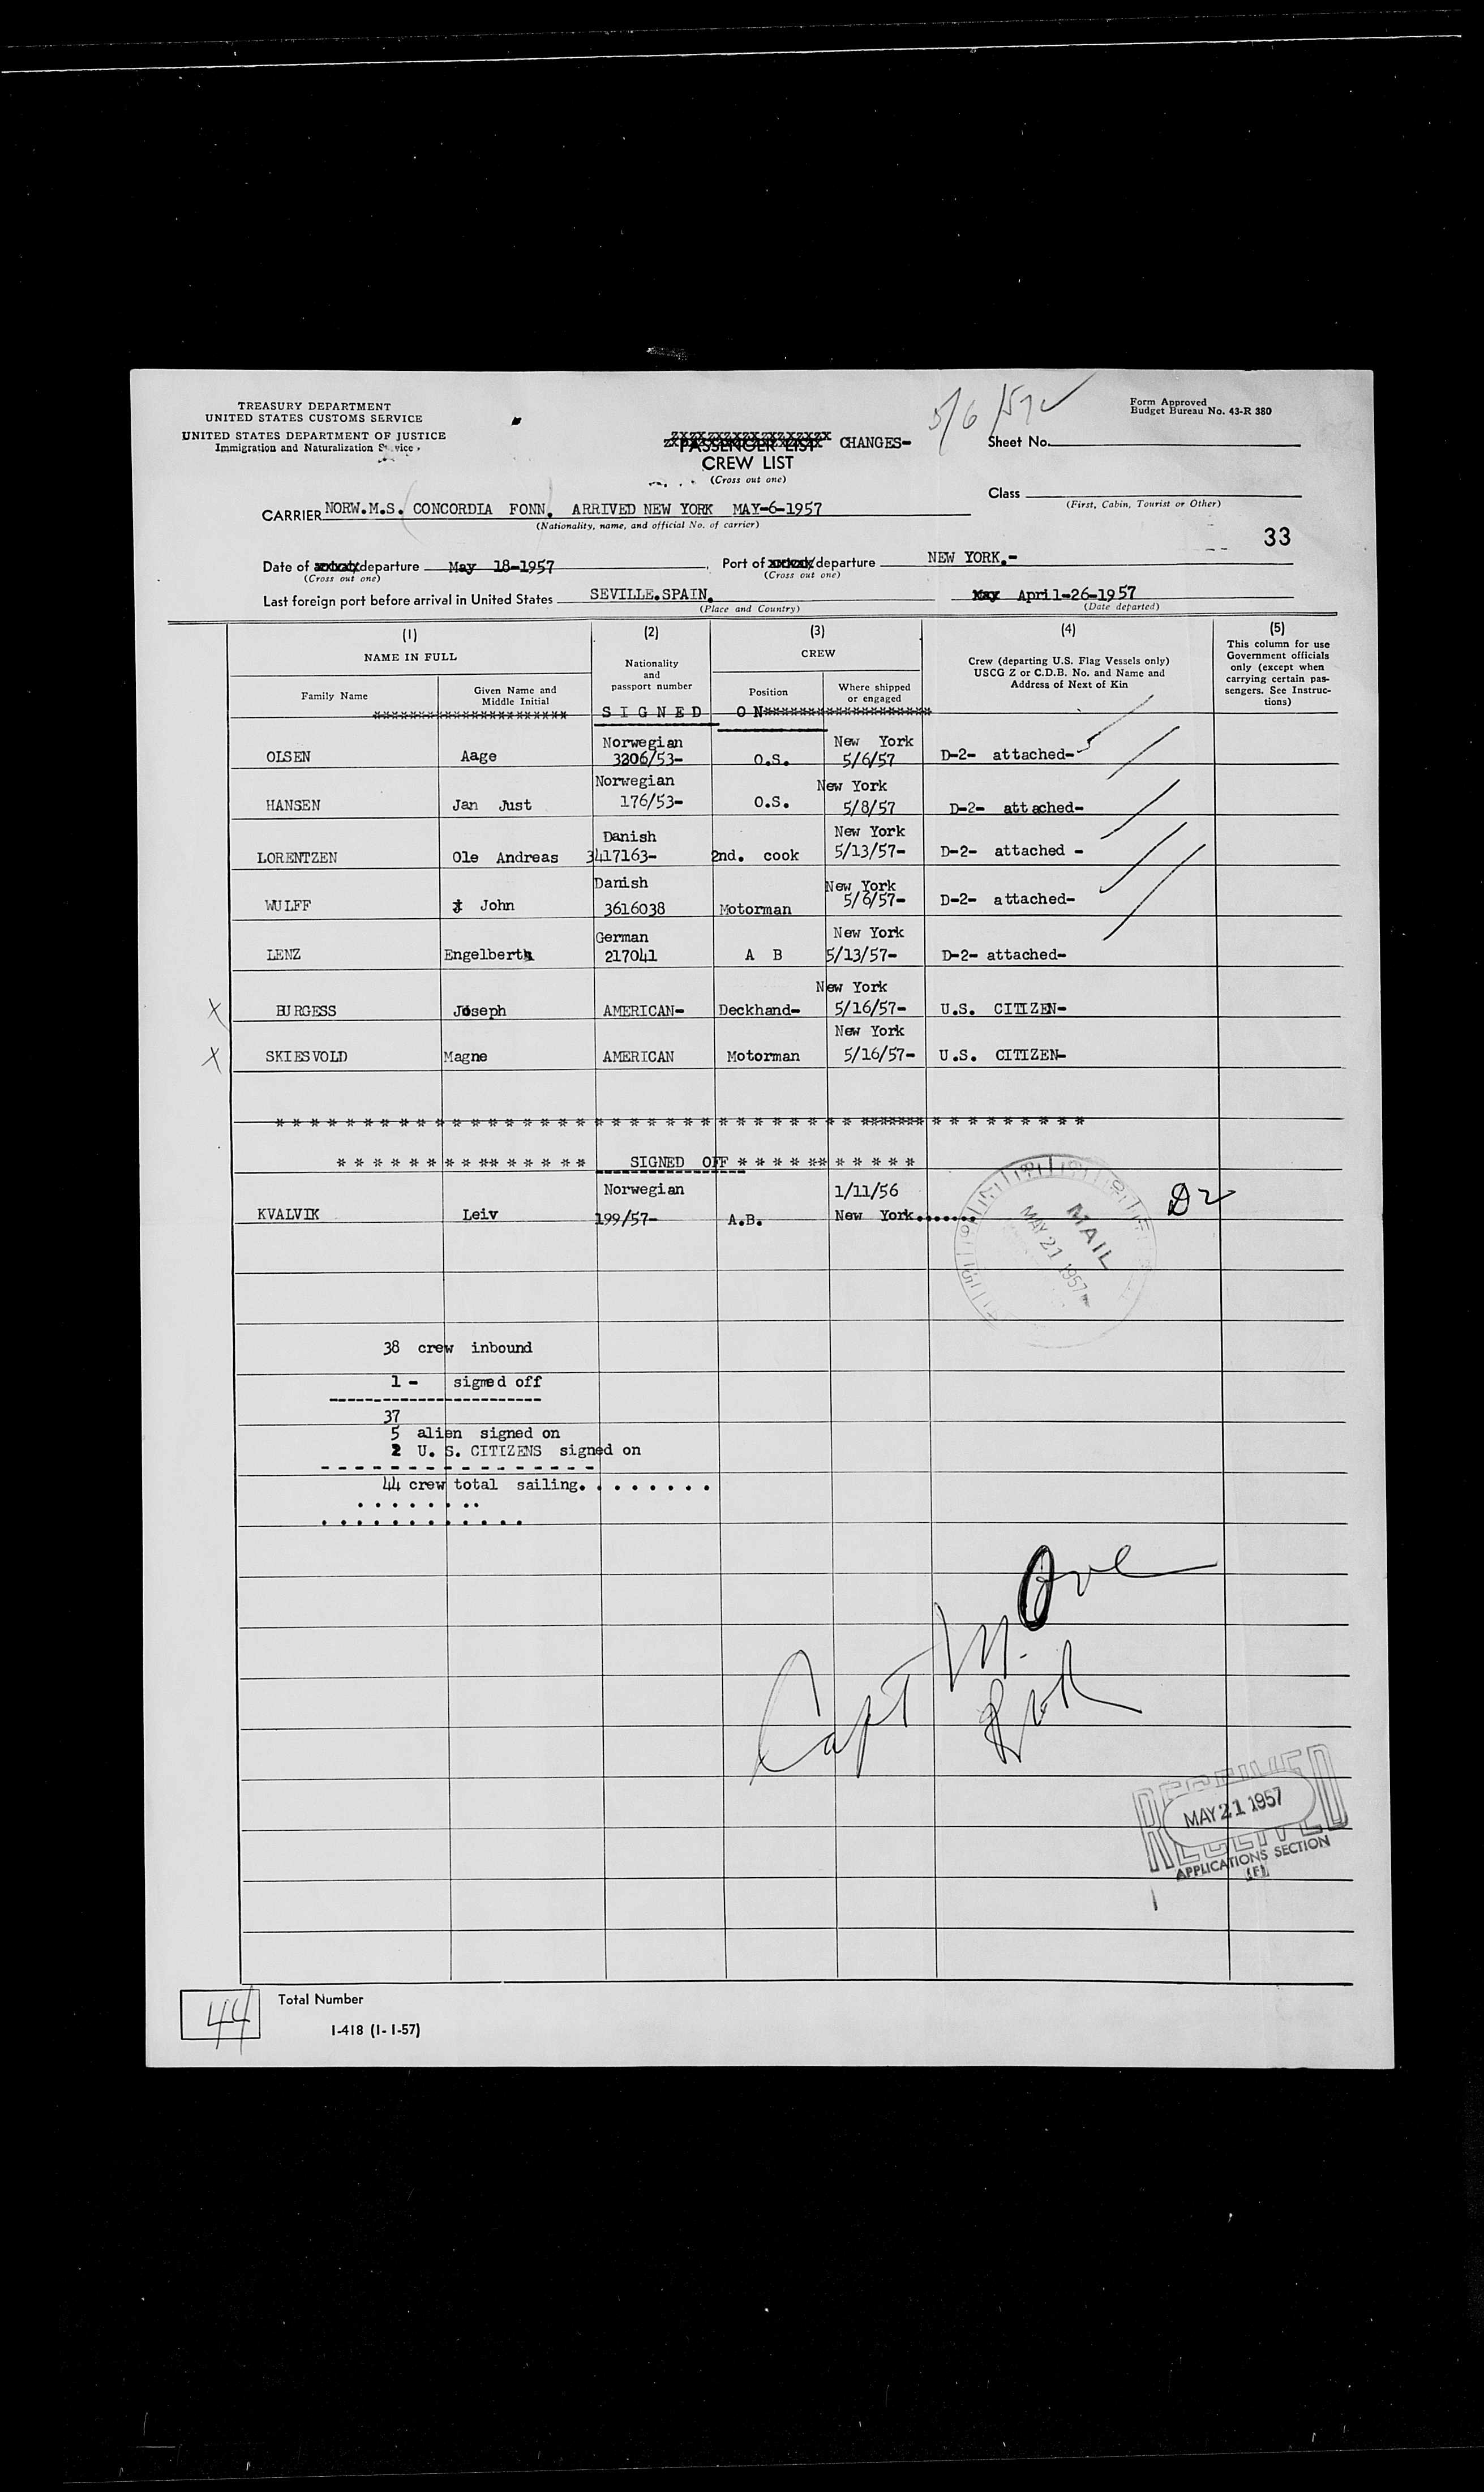 TREASURY DEPARTMENT
UNITED STATES CUSTOMS SERVICE
UNITED STATES DEPARTMENT OF JUSTICE
Immigration and Naturalization Service
5/6/57
Form Approved
Budget Bureau No. 43-R 380
PASSENGER LIST CHANGES-
CREW LIST
(Cross out one)
Sheet No.
Class
(First, Cabin, Tourist or Other)
CARRIER NORW.M.S. CONCORDIA FONN. ARRIVED NEW YORK MAY-6-1957
(Nationality, name, and official No. of carrier)
33
Date of departure May 18-1957 Port of departure NEW YORK.-
(Cross out one) (Cross out one)
Last foreign port before arrival in United States SEVILLE.SPAIN. May April-26-1957
(Place and Country) (Date departed)
(1) (2) (3) (4) (5)
NAME IN FULL
Family Name
Given Name and
Middle Initial
Nationality
and
passport number
CREW
Position
Where shipped
or engaged
Crew (departing U.S. Flag Vessels only)
USCG Z or C.D.B. No. and Name and
Address of Next of Kin
This column for use
Government officials
only (except when
carrying certain pas-
sengers. See Instruc-
tions)
********************** SIGNED ON**********************
Norwegian New York
OLSEN Aage 3206/53- O.S. 5/6/57 D-2- attached-
Norwegian New York
HANSEN Jan Just 176/53- O.S. 5/8/57 D-2- attached-
Danish New York
LORENTZEN Ole Andreas 3417163- 2nd. cook 5/13/57- D-2- attached -
Danish New York
WULFF John 3616038 Motorman 5/6/57- D-2- attached-
German New York
LENZ Engelberth 217041 A B 5/13/57- D-2- attached-
New York
X BURGESS Joseph AMERICAN- Deckhand- 5/16/57- U.S. CITIZEN-
New York
X SKIESVOLD Magne AMERICAN Motorman 5/16/57- U.S. CITIZEN-
* * * * * * * * * * * * * * * * * * * * * * * * * * * * * * * * * ******* * * * * * * * * *
* * * * * * * * * ** * * * * * SIGNED OFF * * * * ** * * * * *
Norwegian 1/11/56
KVALVIK Leiv 199/57- A.B. New York....... D2
MAIL
MAY 21 1957
38 crew inbound
1 - signed off
37
5 alien signed on
2 U. S. CITIZENS signed on
44 crew total sailing. . . . . . . .
Capt M.
RECEIVED
MAY 21 1957
APPLICATIONS SECTION
44 Total Number
I-418 (1-1-57)